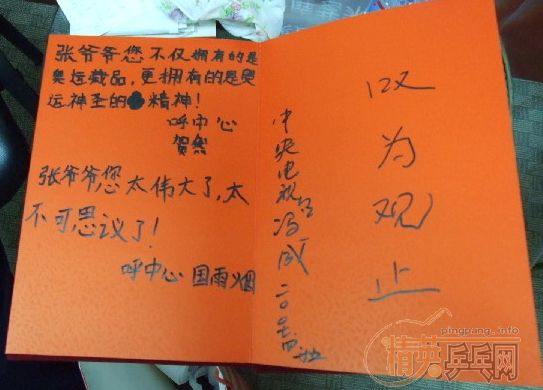 张爷爷您不仅拥有的是
奥运藏品,更拥有的是奥
运神圣的精神!
呼中心
贺然
张爷爷,您太伟大了,太
不可思议了!
呼中心 国雨烟
叹为观止
中央电视台冯成
pingpang.info
精英乒乓网